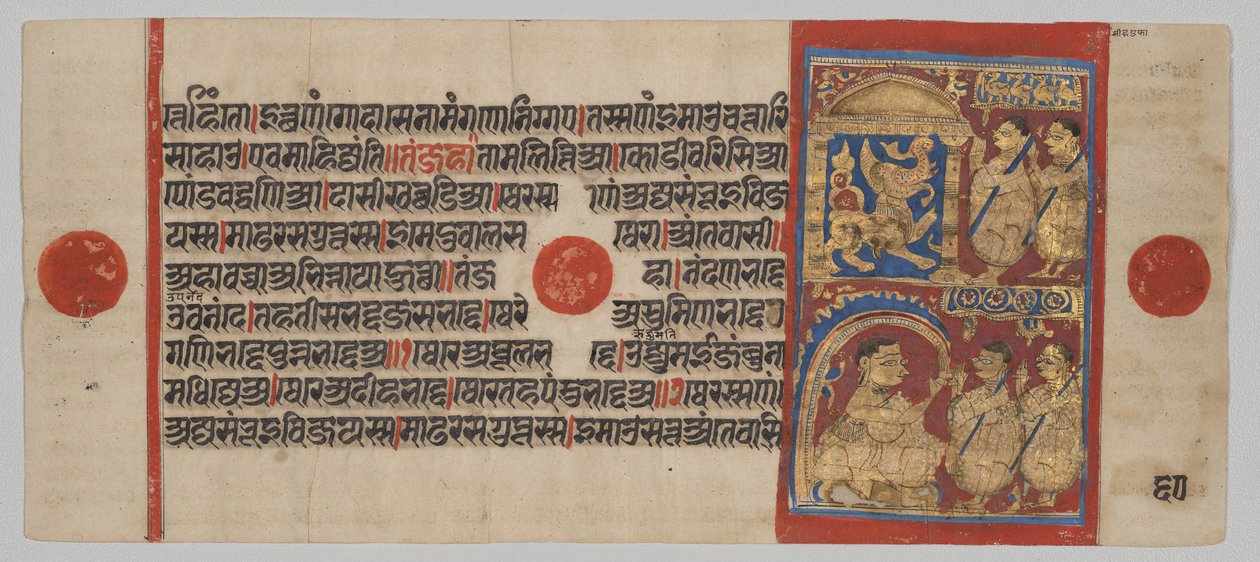 त्तेहिंतो।इच्छणं गोदासनामं गणे निग्गए।तस्सणं इमाउ चत्तारि
साहाउ।एवमाहिज्जंति॥तंजहा तामलित्तिआ।कोडीवरिसिआ
पोंडवद्धणिआ।दासीखब्बडिआ।थेरस्स णं अज्जसंभूइविज
यस्स।माढरसगुत्तस्स।इमे दुवालस थेरा।अंतेवासी॥
अहावच्चा अभिन्नाया हुत्था॥तंज हा।नंदणभद्द
उपनंद
उवनंदे।तहतीसभद्दजसभद्दे।थेरे अ सुमिणभद्दे
गणिभद्दे पुन्नभद्दे अ॥१ थेरे अ थूलभ द्दे।उज्जुमई जंबुना
ऋजुमति
मधिज्जे अ।थेरे अ दीहभद्दे।थेरे तह पंडुभद्दे अ॥२ थेरस्स णं
अज्जसंभूइविजयस्स।माढरसगुत्तस्स।इमाउ सत्त अंतेवासि
६०